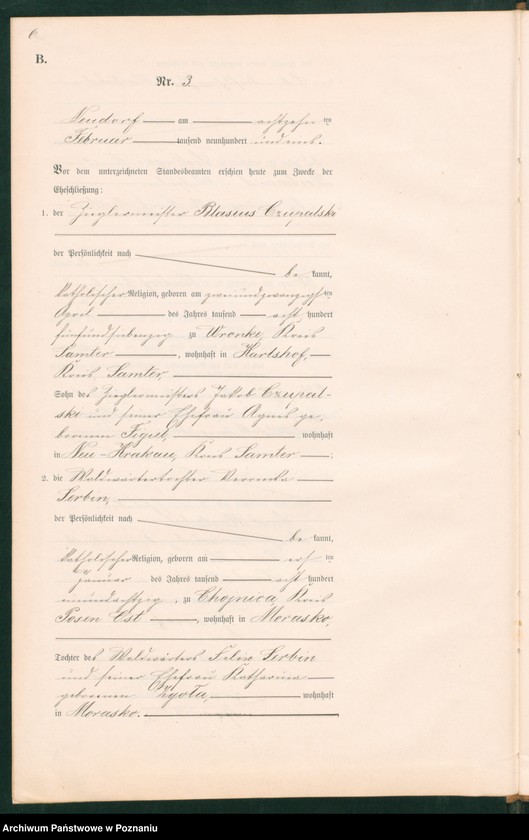 6
B.
Nr. 3
Neudorf am achtzehn ten
Februar tausend neunhundert und eins.
Vor dem unterzeichneten Standesbeamten erschien heute zum Zwecke der
Eheschließung:
1. der Zieglermeister Blasius Czupalski
der Persönlichkeit nach
be kannt,
katholischer Religion, geboren am zweiundzwanzigsten
April des Jahres tausend acht hundert
fünfundsiebenzig zu Wronke, Kreis
Samter, wohnhaft in Karlshof,
Kreis Samter,
Sohn des Zieglermeisters Jakob Czupal-
ski und seiner Ehefrau Agnes ge-
borenen wohnhaft
in Neu-Krakau, Kreis Samter ;
2. die Waldwärtertochter Veronika
Serbin,
der Persönlichkeit nach
be kannt,
katholischer Religion, geboren am ersten
Januar des Jahres tausend acht hundert
einundachtzig, zu Chojnica, Kreis
Posen Ost, wohnhaft in Morasko,
Tochter des Waldwärters Felix Serbin
und seiner Ehefrau Katharina
geborenen wohnhaft
in Morasko.
Archiwum Państwowe w Poznaniu